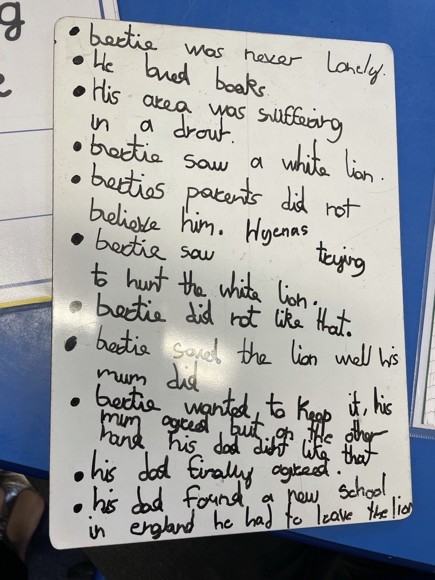 g
• bertie was never lonely.
• He loved books.
• His area was suffering
in a drout.
• bertie saw a white lion.
• berties parents did not
believe him. Hyenas
• bertie saw trying
to hunt the white lion.
• bertie did not like that.
• bertie saved the lion well his
mum did
• bertie wanted to keep it, his
mum agreed but on the other
hand his dad didnt like that
• his dad finally agreed.
• his dad found a new school
in england he had to leave the lion